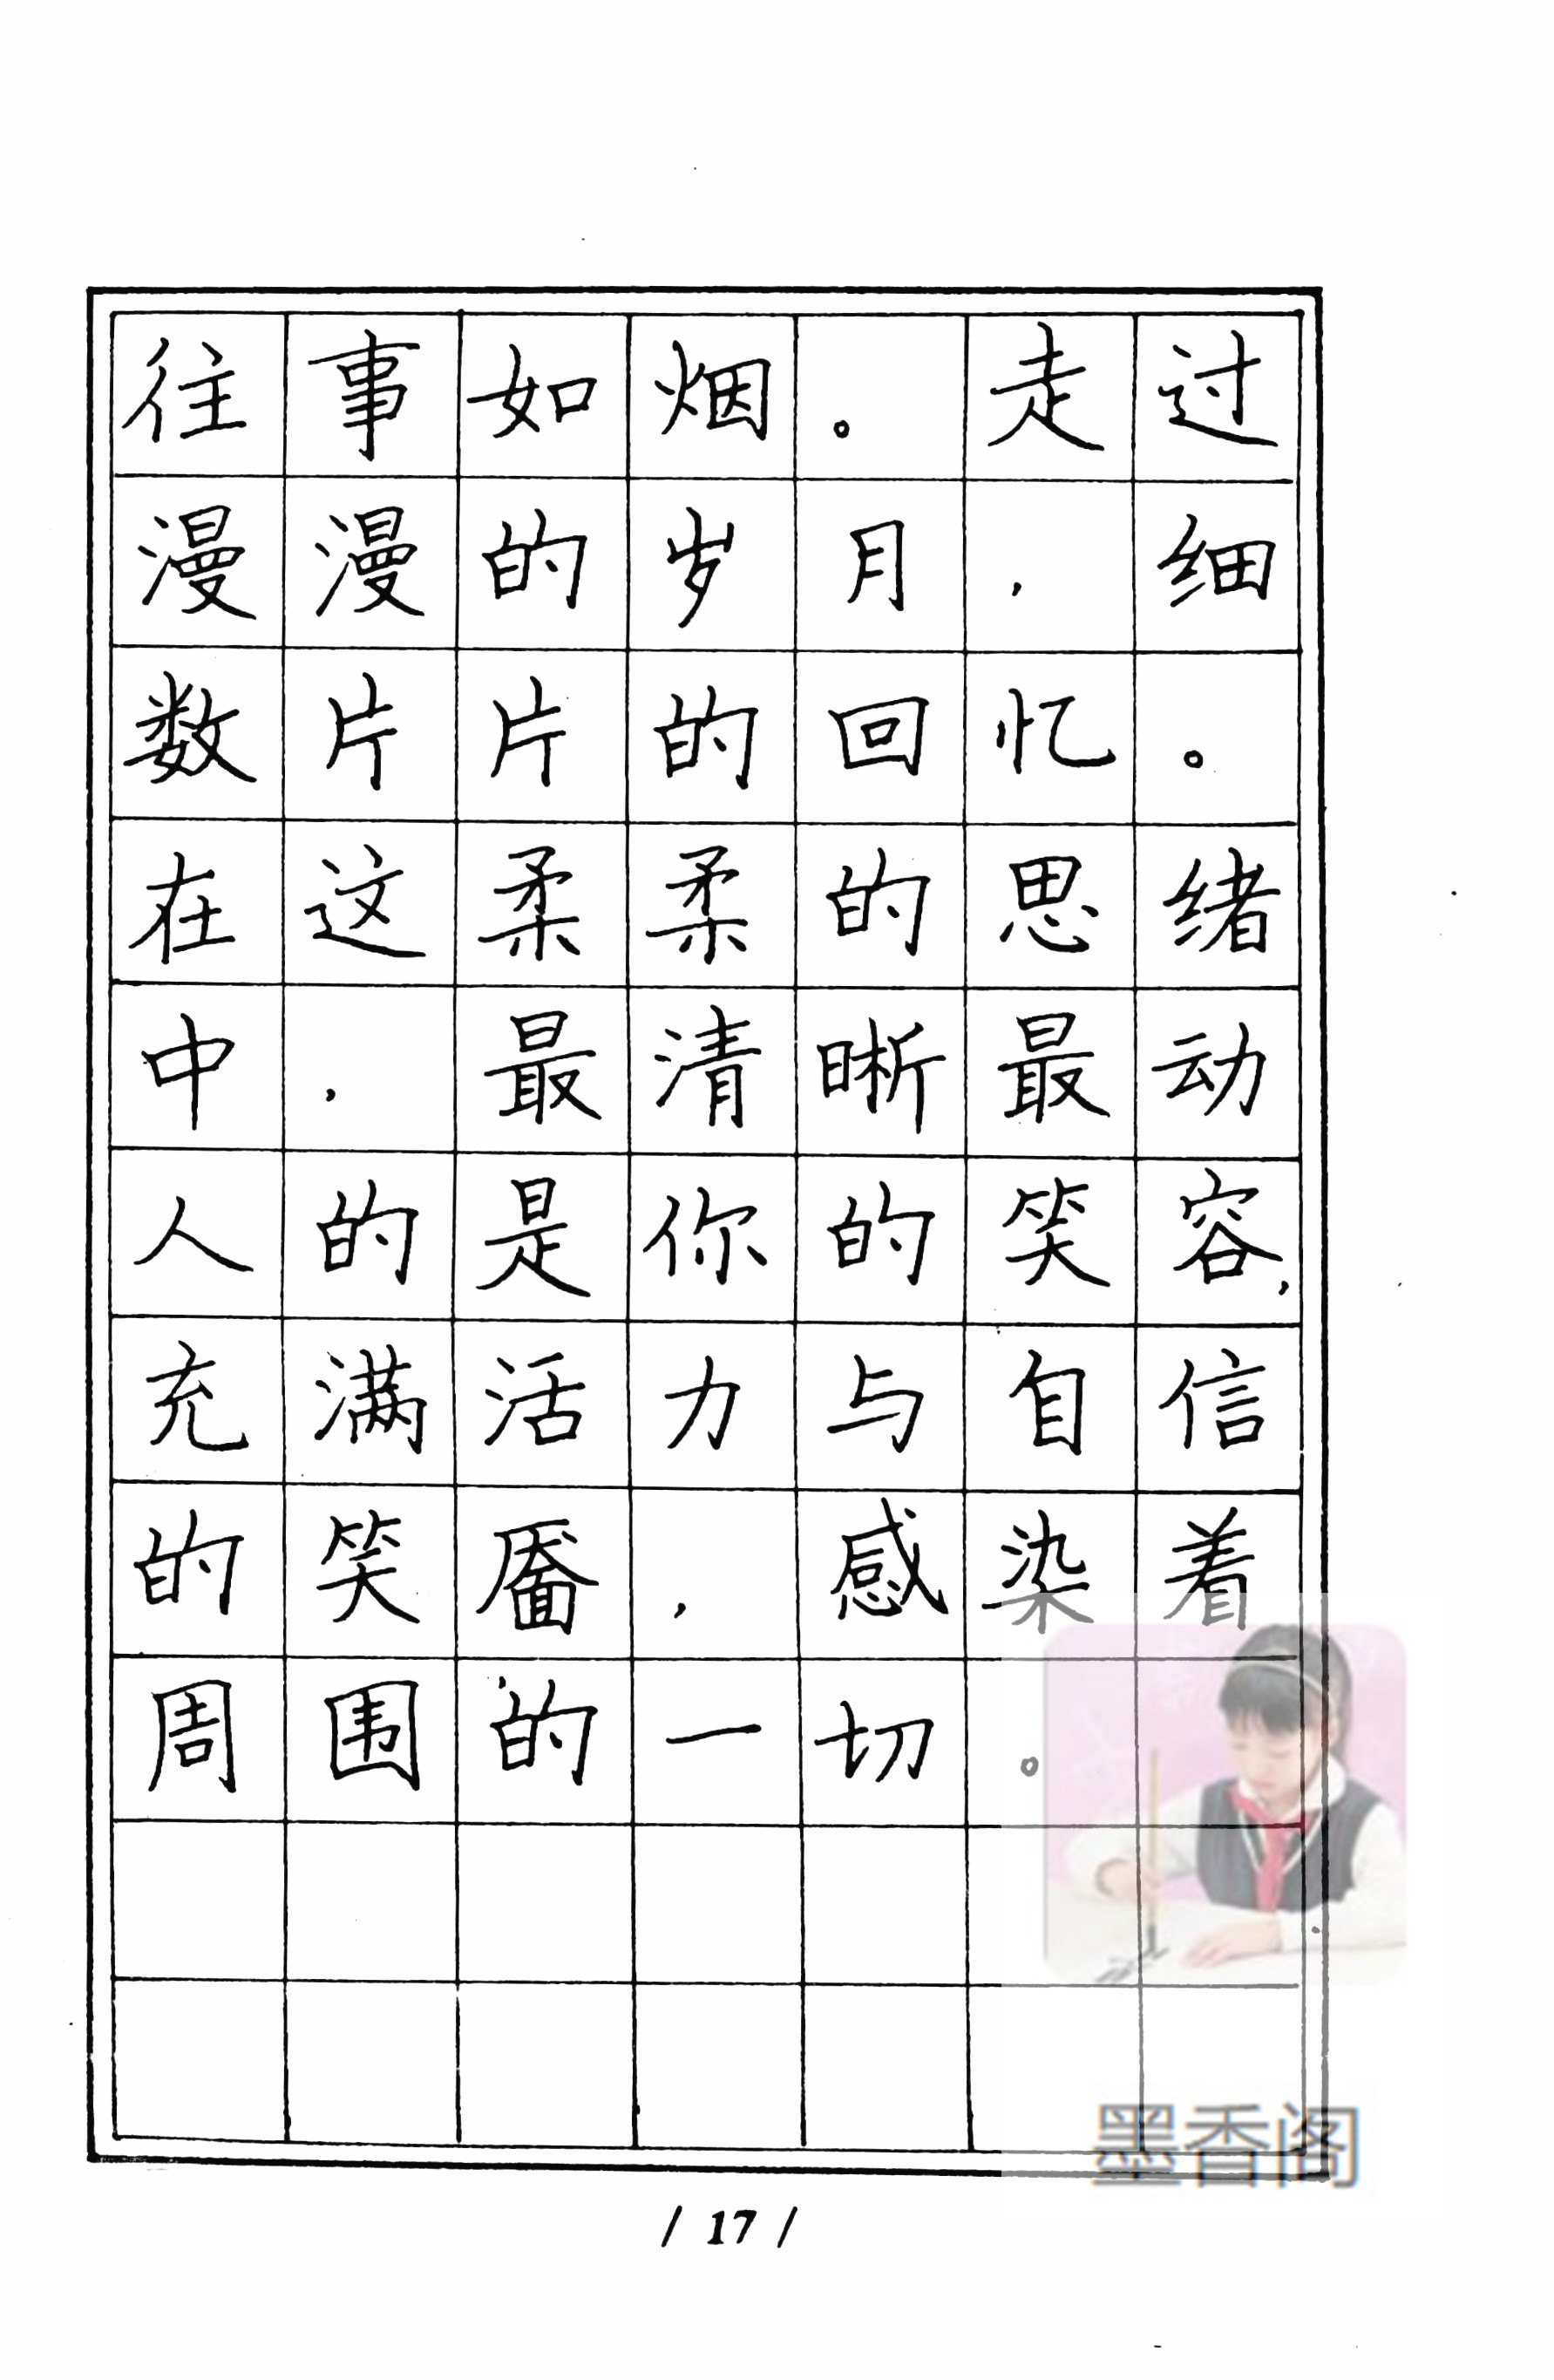 往事如烟。走过
漫漫的岁月,细
数片片的回忆。
在这柔柔的思绪
中,最清晰最动
人的是你的笑容,
充满活力与自信
的笑靥,感染着
周围的一切。
墨香阁
/ 17 /